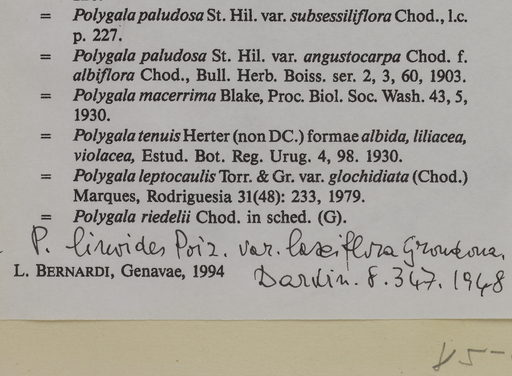 = Polygala paludosa St. Hil. var. subsessiliflora Chod., l.c.
p. 227.
= Polygala paludosa St. Hil. var. angustocarpa Chod. f.
albiflora Chod., Bull. Herb. Boiss. ser. 2, 3, 60, 1903.
= Polygala macerrima Blake, Proc. Biol. Soc. Wash. 43, 5,
1930.
= Polygala tenuis Herter (non DC.) formae albida, liliacea,
violacea, Estud. Bot. Reg. Urug. 4, 98. 1930.
= Polygala leptocaulis Torr. & Gr. var. glochidiata (Chod.)
Marques, Rodriguesia 31(48): 233, 1979.
= Polygala riedelii Chod. in sched. (G).
P. linoides Poir. var. laxiflora Grondona.
L. BERNARDI, Genavae, 1994
Darwin. 8. 347. 1948